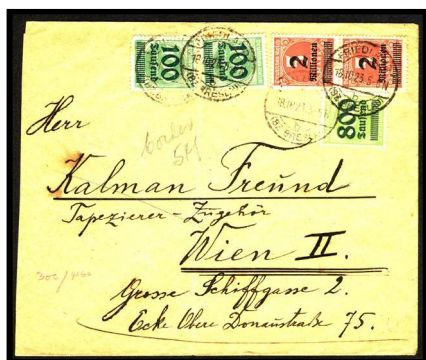 100
Tausend
100
Tausend
2
Millionen
2
Millionen
800
Tausend
Herr
Kalman Freund
Tapezierer - Zugehör
Wien II.
Grosse Schiffgasse 2.
Ecke Obere Donaustraße 75.